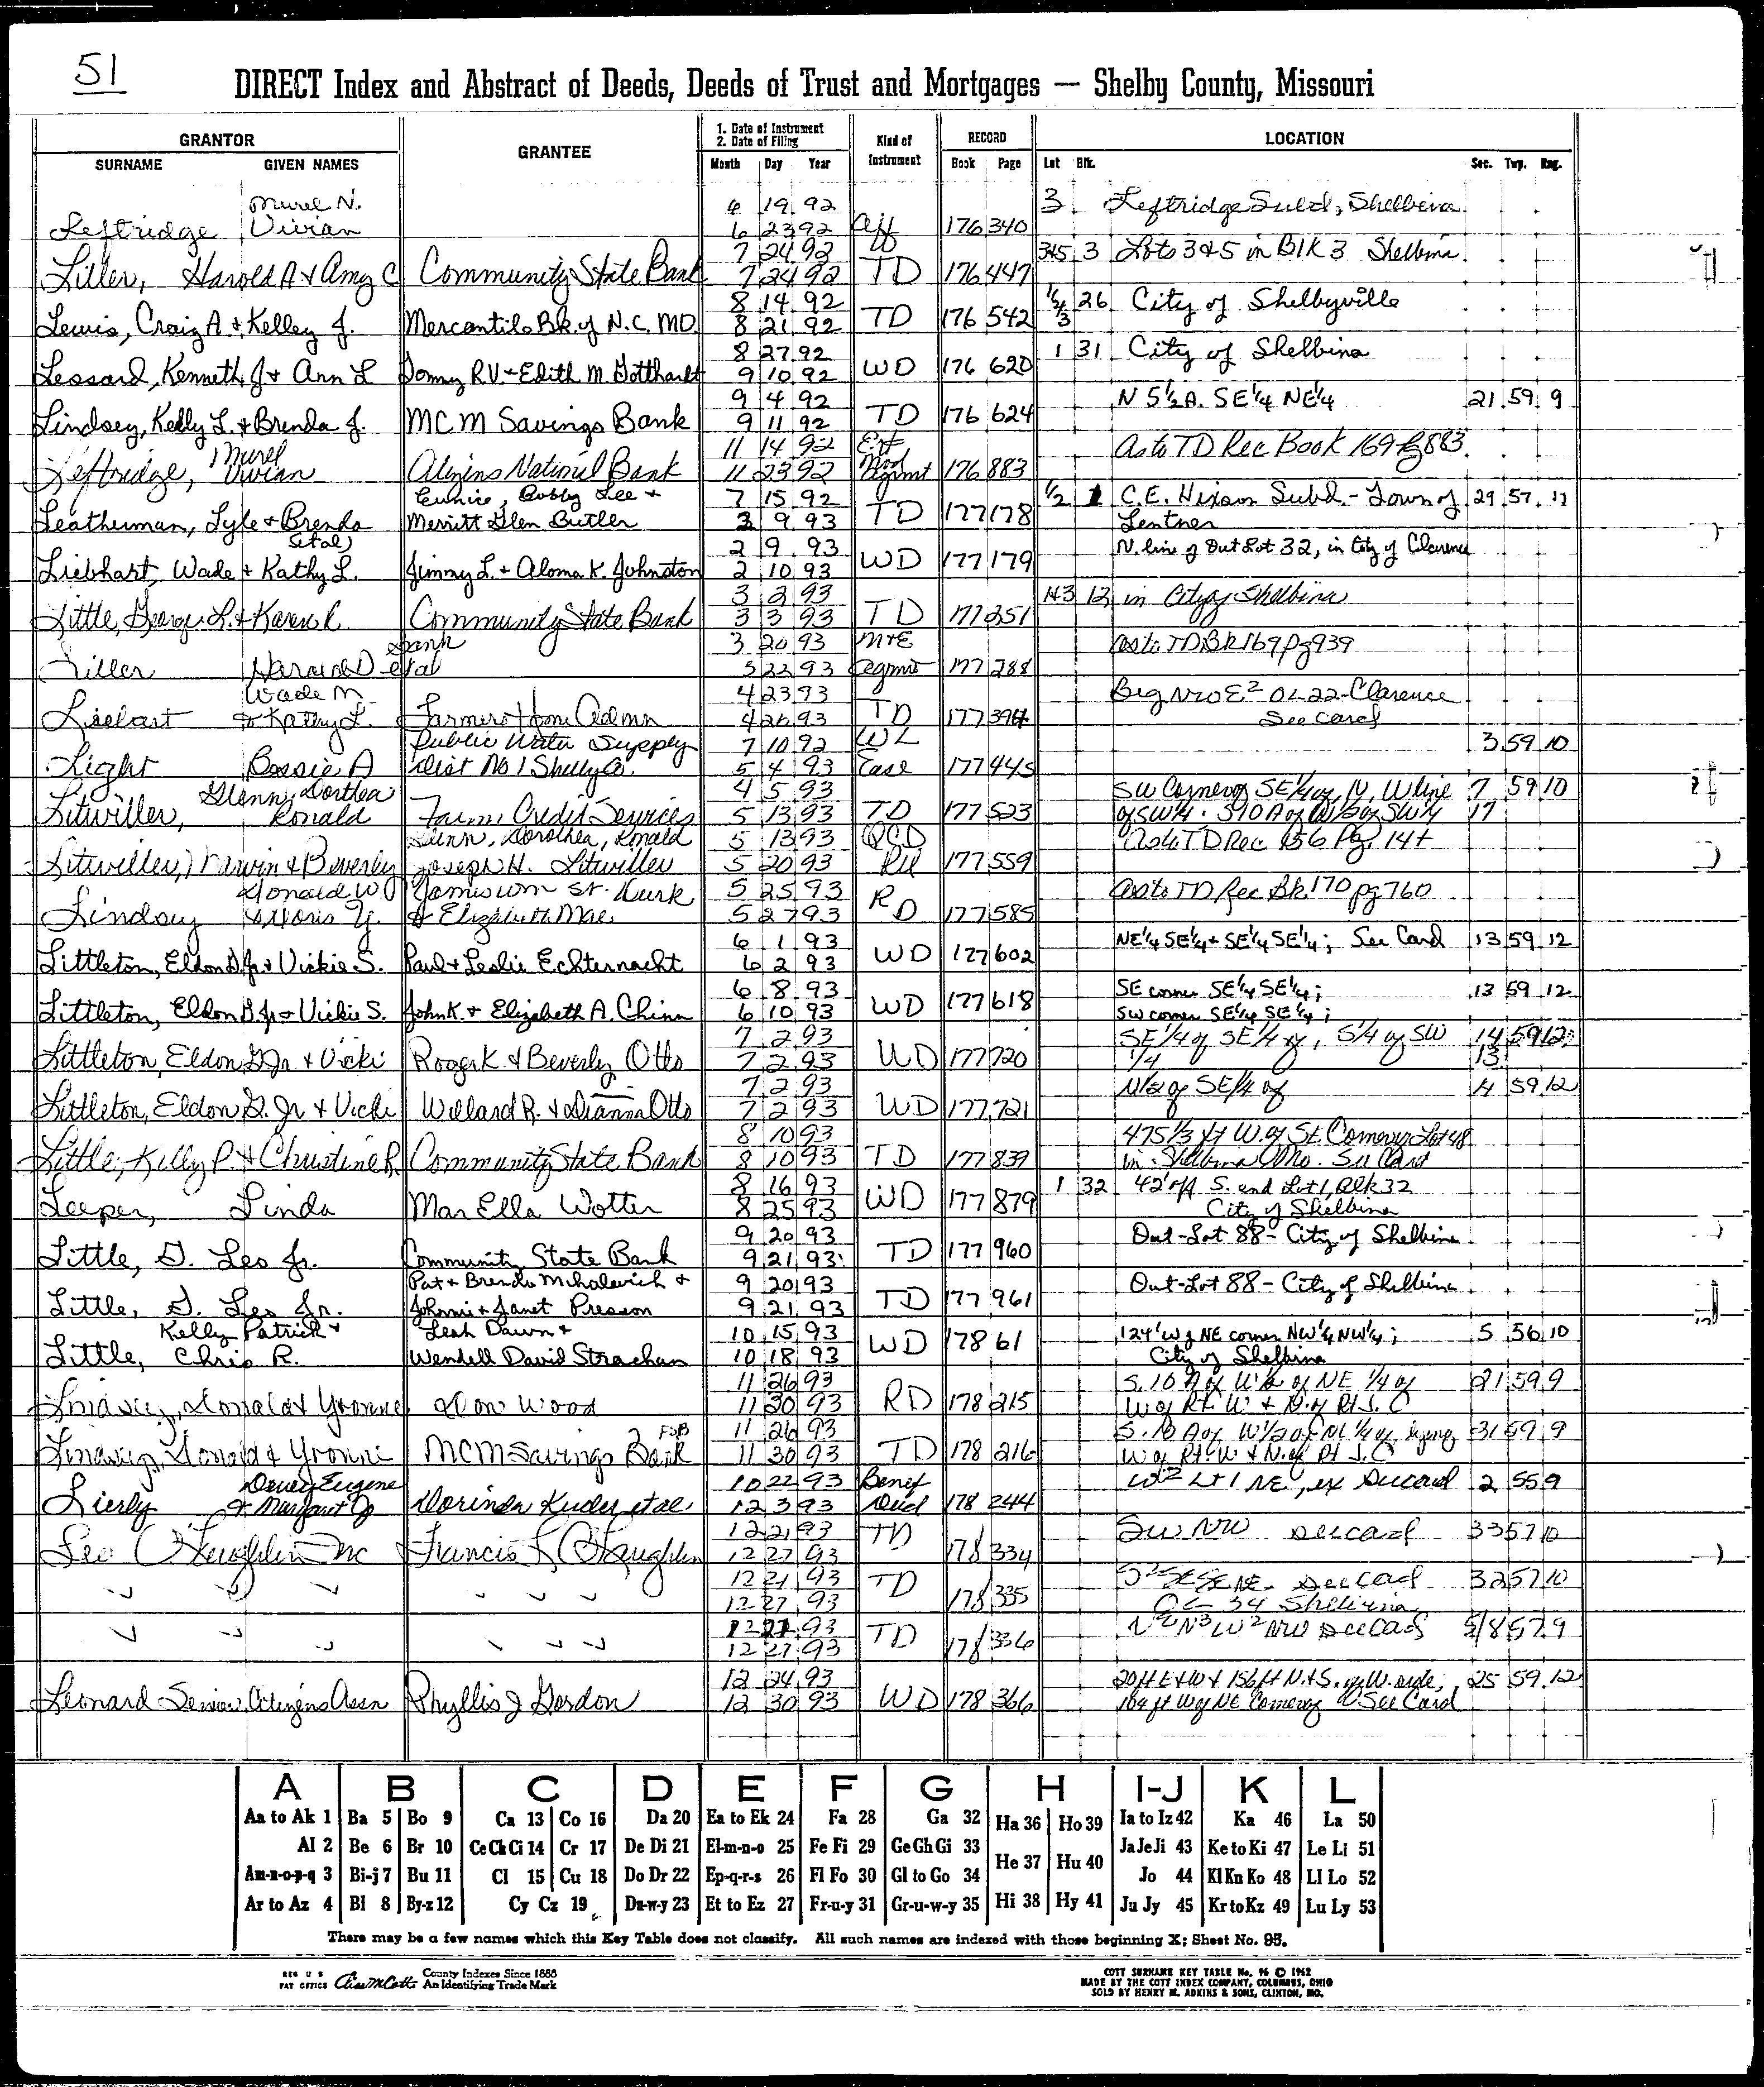 51
DIRECT Index and Abstract of Deeds, Deeds of Trust and Mortgages — Shelby County, Missouri
GRANTOR GRANTEE 1. Date of Instrument 2. Date of Filing Kind of Instrument RECORD LOCATION
SURNAME GIVEN NAMES Month Day Year Book Page Lot Blk. Sec. Twp. Rng.
Murel N. 6 19 92 3 Leftridge Subd, Shelbina
Leftridge Vivian 6 23 92 Aff 176 340
7 24 92 3&5 3 Lots 3&5 in Blk 3 Shelbina
Liller, Harold A & Amy C Community State Bank 7 24 92 TD 176 447
8 14 92 26 City of Shelbyville
Lewis, Craig A. & Kelley J. Mercantile Bk. of N.C. MO. 8 21 92 TD 176 542
8 27 92 1 31 City of Shelbina
Lessard, Kenneth J & Ann L R.V. & Edith M. Gotthardt 9 10 92 WD 176 620
9 4 92 N 5½A. SE¼ NE¼ 21 59 9
Lindsey, Kelly L. & Brenda J. MCM Savings Bank 9 11 92 TD 176 624
Murel 11 14 92 Ext As to TD Rec Book 169 Pg 883
Leftridge, Vivian National Bank 11 23 92 Mod Agmt 176 883
Eunice, Bobby Lee & 7 15 92 1/2 1 C.E. Hixson Subd. - Town of 29 57 11
Leatherman, Lyle & Brenda Merritt Glen Butler 3 9 93 TD 177 178 Lentner
(et al) 2 9 93 N. line of Out Lot 32, in City of Clarence
Liebhart, Wade & Kathy L. Jimmy L. & Aloma K. Johnston 2 10 93 WD 177 179
3 2 93 12 in City of Shelbina
Little, George L. & Karen R. Community State Bank 3 3 93 TD 177 251
Bank 3 20 93 M&E As to TD Bk 169 pg 939
Liller Harold D etal 3 22 93 Agmt 177 288
Wade M 4 23 93 Beg NW E² OL 22 - Clarence
Liebart & Kathy L. Farmers Home Admn 4 26 93 TD 177 394 See Card
Public Water Supply 7 10 92 WL 3 59 10
Light Bessie A Dist No 1 Shelby Co. 5 4 93 Ease 177 445
Glenn, Dorthea 4 5 93 SW Corner of SE¼ of, N, W line 7 59 10
Litwiller, Ronald Farm Credit Services 5 13 93 TD 177 523 of SW¼. S 70 A of W½ of SW¼ 17
Glenn, Dorothea, Ronald 5 13 93 QCD As to TD Rec 156 Pg. 14+
Litwiller, Marvin & Beverly Joseph H. Litwiller 5 20 93 Rel 177 559
Donald W. Jamison St. Kurk 5 25 93 R As to TD Rec Bk. 170 pg 760
Lindsey & Doris Y. & Elizabeth Mae 5 27 93 D 177 585
6 1 93 NE¼ SE¼ + SE¼ SE¼; See Card 13 59 12
Littleton, Eldon D. Jr & Vickie S. Paul & Leslie Echternacht 6 2 93 WD 177 602
6 8 93 SE corner SE¼ SE¼; 13 59 12
Littleton, Eldon D. Jr & Vickie S. John K. & Elizabeth A. Chinn 6 10 93 WD 177 618 SW corner SE¼ SE¼;
7 2 93 SE 1/4 of SE 1/4 of, S 1/4 of SW 14 59 12
Littleton, Eldon D Jr & Vicki Roger K & Beverly Otto 7 2 93 WD 177 720 1/4 13
7 2 93 N 1/2 of SE 1/4 of 14 59 12
Littleton, Eldon D. Jr & Vicki Willard R. & Dianna Otto 7 2 93 WD 177 721
8 10 93 475 1/3 ft W. of SE. Corner of Lot 48
Little, Kelly P. & Christine R. Community State Bank 8 10 93 TD 177 839 in Shelbina Mo. See Card
8 16 93 1 32 42' off S. end Lot 1, Blk 32
Leeper, Linda Mar Ella Wotter 8 25 93 WD 177 879 City of Shelbina
9 20 93 Out-Lot 88 - City of Shelbina
Little, G. Leo Jr. Community State Bank 9 21 93 TD 177 960
Pat & Brenda Mihalevich & 9 20 93 Out-Lot 88 - City of Shelbina
Little, G. Leo Jr. Johnni & Janet Presson 9 21 93 TD 177 961
Kelly Patrick & Leah Dawn & 10 15 93 124' W of NE corner NW¼ NW¼; 5 56 10
Little, Chris R. Wendell David Strachan 10 18 93 WD 178 61 City of Shelbina
11 26 93 S. 10 A of W ½ of NE 1/4 of 21 59 9
Lindsey, Donald & Yvonne Don Wood 11 30 93 RD 178 215 W of Rt. W & N. of Rt. J. C
FSB 11 26 93 S. 10 A of W 1/2 of NE 1/4 of lying 31 59 9
Lindsey, Donald & Yvonne MCM Savings Bank 11 30 93 TD 178 216 W of Rt. W & N. of Rt J. C
Dewey Eugene 10 22 93 Benef W² Lt 1 NE, ex See card 2 55 9
Lierly & Margaret Jo Dorinda Kuder etal 12 3 93 Deed 178 244
12 21 93 TD SW NW See card 33 57 10
Leo O'Laughlin Inc Francis L O'Laughlin 12 27 93 178 334
12 21 93 TD SE SE NE. See card 32 57 10
12 27 93 178 335 OL 34 Shelbina
12 21 93 TD W² NW See Card 57 9
12 27 93 178 336
12 24 93 20 ft E & W & 156 ft N. & S. of W. side; 25 59 12
Leonard Senior Citizens Assn Phyllis J Gordon 12 30 93 WD 178 366 104 ft W of NE Corner of See Card
A B C D E F G H I-J K L
Aa to Ak 1 Ba 5 Bo 9 Ca 13 Co 16 Da 20 Ea to Ek 24 Fa 28 Ga 32 Ha 36 Ho 39 Ia to Iz 42 Ka 46 La 50
Al 2 Be 6 Br 10 Ce Ch Ci 14 Cr 17 De Di 21 El-m-n-o 25 Fe Fi 29 Ge Gh Gi 33 He 37 Hu 40 Ja Je Ji 43 Ke to Ki 47 Le Li 51
Am-n-o-p-q 3 Bi-j 7 Bu 11 Cl 15 Cu 18 Do Dr 22 Ep-q-r-s 26 Fl Fo 30 Gl to Go 34 Jo 44 Kl Kn Ko 48 Ll Lo 52
Ar to Az 4 Bl 8 By-z 12 Cy Cz 19 Du-w-y 23 Et to Ez 27 Fr-u-y 31 Gr-u-w-y 35 Hi 38 Hy 41 Ju Jy 45 Kr to Kz 49 Lu Ly 53
There may be a few names which this Key Table does not classify. All such names are indexed with those beginning X; Sheet No. 95.
REG U S PAT OFFICE County Indexes Since 1888 An Identifying Trade Mark
COTT SURNAME KEY TABLE No. 96 © 1962
MADE BY THE COTT INDEX COMPANY, COLUMBUS, OHIO
SOLD BY HENRY M. ADKINS & SONS, CLINTON, MO.